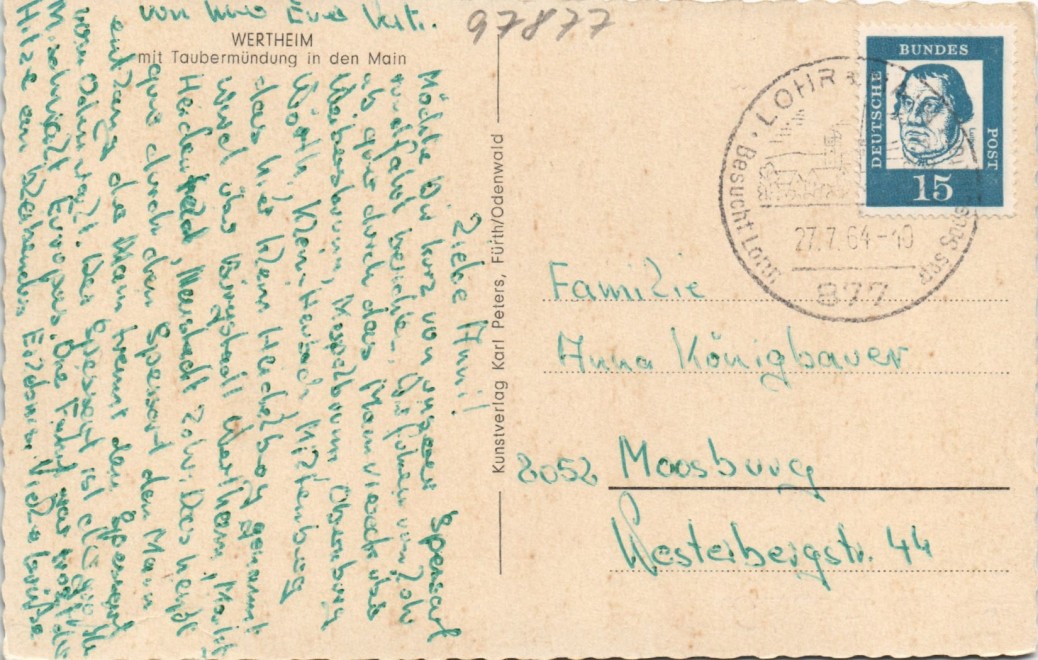 97877
WERTHEIM
mit Taubermündung in den Main
Kunstverlag Karl Peters, Fürth/Odenwald
DEUTSCHE
BUNDES
POST
15
LOHR
Besucht Lohr
des Spessarts
27.7.64-10
877
Familie
Anna Königbauer
8052 Moosburg
Westerbergstr. 44
Liebe Anni!
Möchte Dir kurz von unserer Spessart
rundfahrt berichten. Wir fuhren von Lohr
ab quer durch das Mainviereck über
Weibersbrunn, Mespelbrunn Obernburg
Wörth, Klein Heubach Miltenberg
das hier Klein Heidelberg genannt
wird über Bürgstadt Wertheim, Markt
Heidenfeld, Neustadt Lohr. Das heißt
quer durch den Spessart dem Main
entlang. der Main trennt den Spessart
vom Odenwald. Der Spessart ist der größte
Mischwald Europas. Die Fahrt war trotz der
Hitze ein Erlebnis. Viele Grüße
von